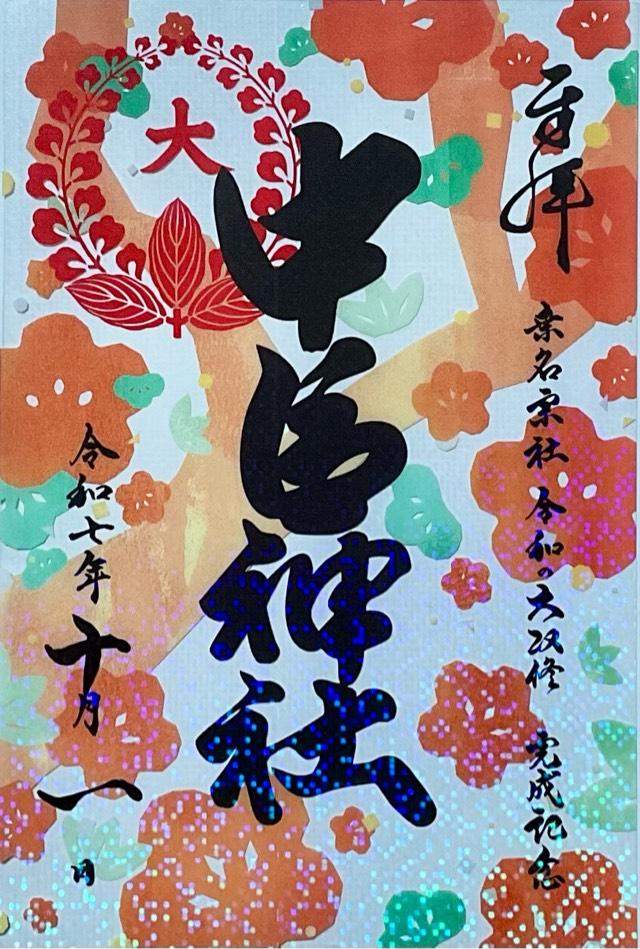 奉拝
桑名宗社 令和の大改修 完成記念
大
中臣神社
令和七年十月一日